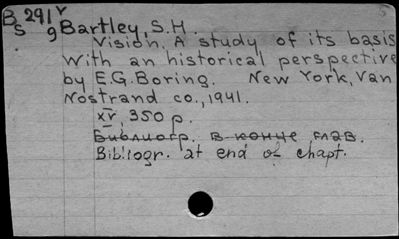 B 291 v Bartley, S.H.
s 9
Vision. A study of its basis
with an historical perspective
by E.G. Boring. New York, Van
Nostrand co., 1941.
xv, 350 p.
Библиогр. в конце глав.
Bibliogr. at end of chapt.